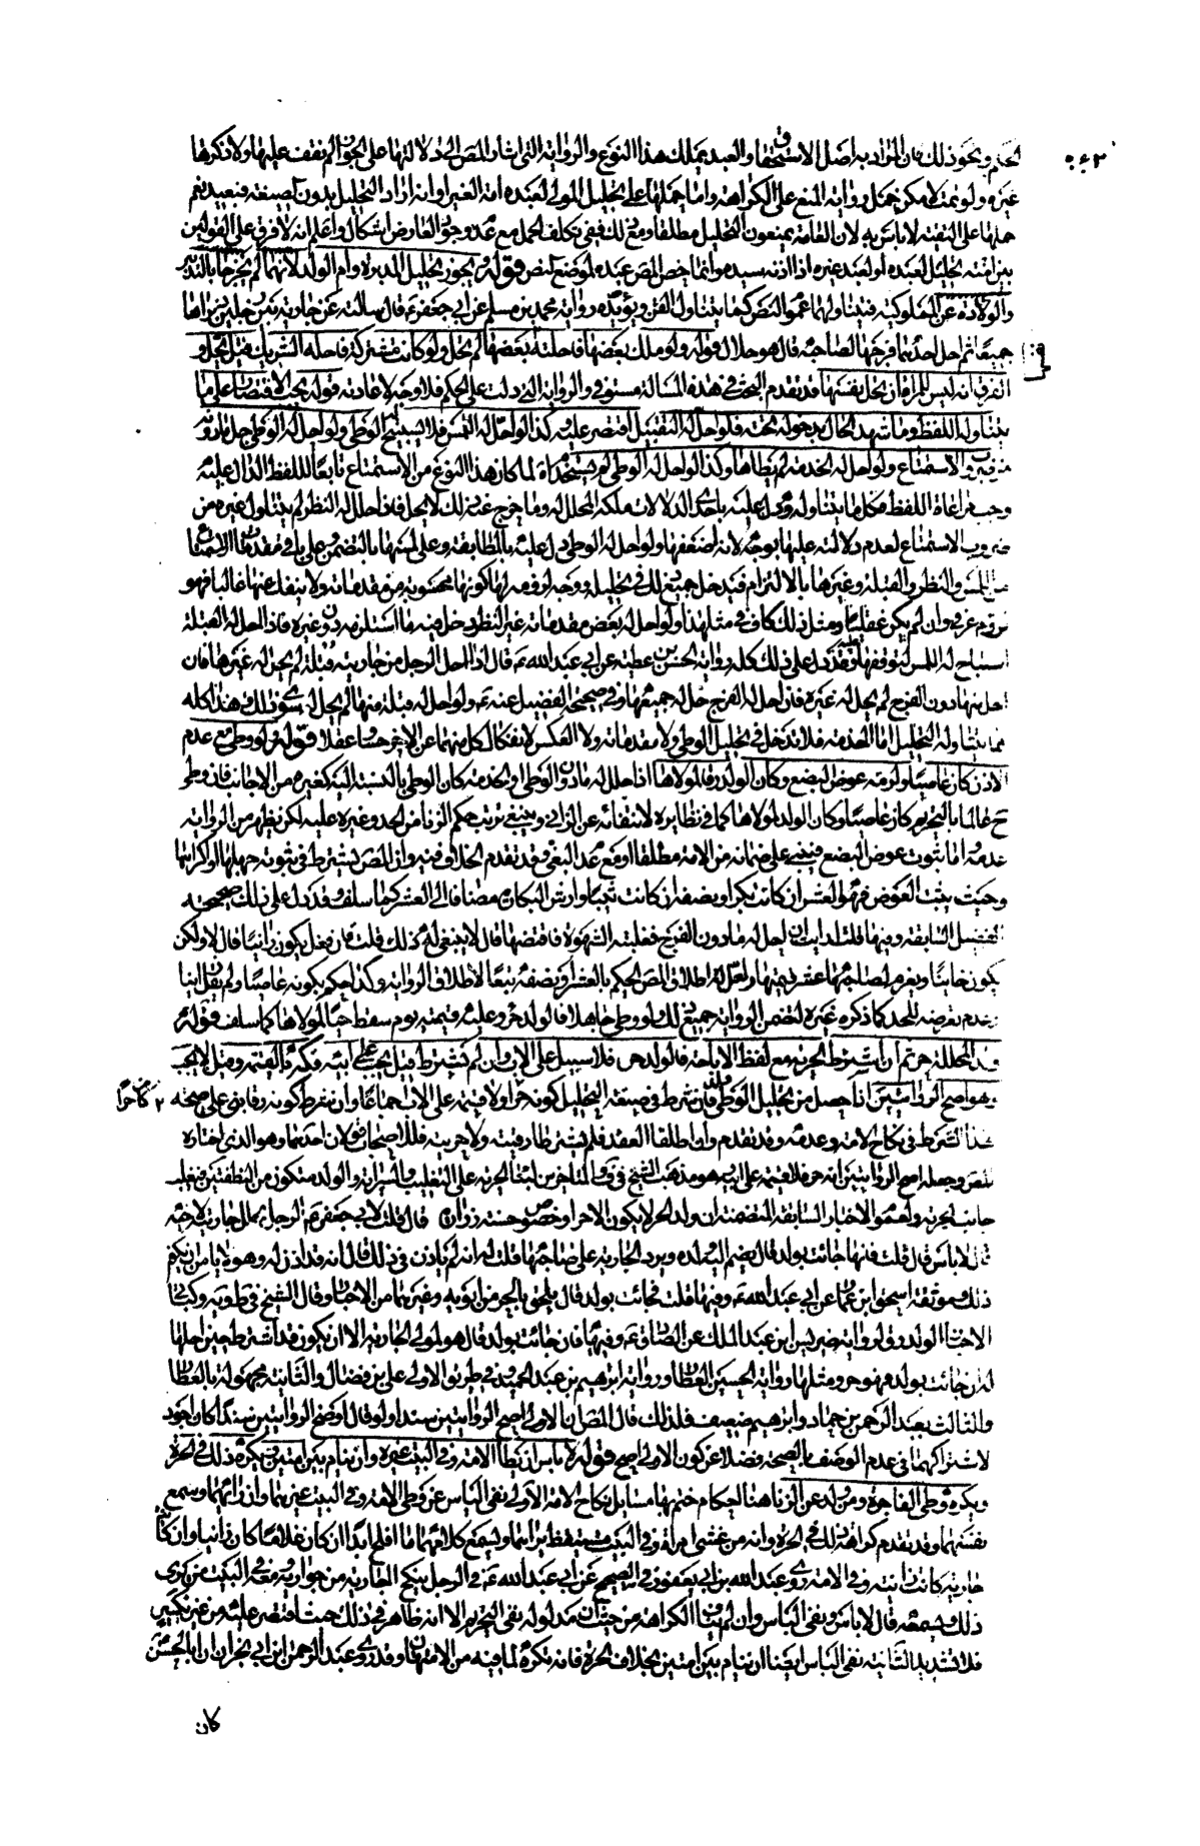 الحكم ونحو ذلك فان المراد به اصل الاستحقاق والعبد يملك هذا النوع والرواية التي اشار المص الى دلالتها على الجواز لم نقف عليها ولا ذكرها
غيره ولو تمت لامكن حمل رواية المنع على الكراهة واما حملها على تحليل المولى لعبده امة الغير او انه اراد التحليل بدون الصيغة فبعيد نعم
حملها على التقية لا باس به لان العامة يمنعون التحليل مطلقا ومع ذلك ففي تكلف الحمل مع عدم وجود المعارض اشكال واعلم انه لا فرق على القولين
بين امته تحليل لعبده او لعبد غيره اذا اذن سيده وانما خص المص عبده لموضع النص قوله ويجوز تحليل المدبرة وام الولد لانهما لم يخرجا بالتدبير
والولادة عن المملوكية فيتناولهما عموم النص كما يتناول القن ويؤيده رواية محمد بن مسلم عن ابي جعفر ع قال سالته عن جارية بين رجلين دبراها
جميعا ثم احل احدهما فرجها لصاحبه قال هو حلال قوله ولو ملك بعضها فاحلته نفسها لم تحل ولو كانت مشتركة فاحله الشريك قيل تحل و
الفرق انه ليس للمراة ان تحل نفسها قد تقدم البحث في هذه المسالة مستوفى والرواية التي دلت على الحكم فلا وجه لاعادته قوله يجب الاقتصار على ما
يتناوله اللفظ وما شهد الحال بدخوله تحته فلو احل له التقبيل اقتصر عليه وكذا لو احل له اللمس فلا يستبيح الوطي ولو احل له الوطي حل له ما دونه
من ضروب الاستمتاع ولو احل له الخدمة لم يطاها وكذا لو احل له الوطي لم يستخدم لما كان هذا النوع من الاستمتاع تابعا للفظ الدال عليه
وجب مراعاة اللفظ فكل ما يتناوله ودل عليه باحدى الدلالات ملكه المحلل له وما خرج عن ذلك لا يحل فاذا حلل له النظر لم يتناول غيره من
ضروب الاستمتاع لعدم دلالته عليها بوجه لانه اضعفها ولو احل له الوطي دل عليه بالمطابقة وعلى لمسها بالتضمن وعلى باقي مقدمات الاستمتاع
من اللمس والنظر والقبلة وغيرها بالالتزام فيدخل جميع ذلك في تحليله ووجه لزومه لها كونها محسوبة من مقدماته ولا ينفك عنها غالبا فهو
لزوم عرفي وان لم يكن عقليا ومثل ذلك كاف في مثل هذا ولو احل له بعض مقدماته غير النظر دخل فيه ما استلزمه دون غيره فاذا احل له القبلة
استباح له اللمس لتوقفها عليه وقد دل على ذلك كله رواية الحسن بن عطية عن ابي عبد الله ع قال اذا احل الرجل من جاريته قبلة لم يحل له غيرها فان
احل منها دون الفرج لم يحل له غيره فان احل له الفرج حل له جميعها وفي صحيحة الفضيل عنه ع ولو احل له قبلة منها لم يحل له سوى ذلك وهذا كله
مما يتناوله التحليل اما الخدمة فلا تدخل في تحليل الوطي ولا مقدماته ولا العكس لانفكاك كل منهما عن الاخر حسا وعقلا قوله ولو وطي مع عدم
الاذن كان عاصيا ولزمه عوض البضع وكان الولد رقا لمولاها اذا حلل له ما دون الوطي او الخدمة كان الوطي بالنسبة اليه كغيره من الاجانب فاذا وطي
ح عالما بالتحريم كان عاصيا وكان الولد لمولاها كما في نظايره لانتفائه عن الزاني وينبغي ترتب حكم الزنا من الحد وغيره عليه لكن يظهر من الرواية
عدمه واما ثبوت عوض البضع فيبنى على ضمانه من الامة مطلقا او مع عدم البغي وقد تقدم الخلاف فيه وان المص يشترط في ثبوته جهلها او اكراهها
وحيث يثبت العوض فهو العشر ان كانت بكرا ونصفه ان كانت ثيبا وارش البكارة مضافا الى العشر كما سلف وقد دل على ذلك صحيحة
الفضيل السابقة وفيها قلت ارايت ان احل له ما دون الفرج فغلبته الشهوة فافتضها قال لا ينبغي له ذلك قلت فان فعل يكون زانيا قال لا ولكن
يكون خائنا ويغرم لصاحبها عشر قيمتها ولعل اطلاق المص الحكم بالعشر او نصفه تبعا لاطلاق الرواية وكذا حكم بكونه عاصيا ولم يقل زانيا
لعدم تعرضه للحد كما ذكره غيره لتضمن الرواية جميع ذلك ولو وطي جاهلا فالولد حر وعليه قيمته يوم سقط حيا لمولاها كما سلف قوله
ولد المحللة حر ثم ان اشترط الحرية مع لفظ الاباحة فالولد حر فلا سبيل على الاب وان لم يشترط قيل يجب على ابيه فكه بالقيمة وقيل لا يجب
وهو اصح الروايتين اذا حصل من تحليل الوطي ولد فان شرط في صيغة التحليل كونه حرا ولا قيمة على الاب اجماعا وان شرط كونه رقا بني على صحة ٢ كان حرا
هذا الشرط في نكاح الامة وعدمه وقد تقدم وان اطلقا العقد فلم يشترطا رقيته ولا حريته فللاصحاب قولان احدهما وهو الذي اختاره
المص وجعله اصح الروايتين انه حر فلا قيمة على ابيه وهو مذهب الشيخ في ف والمتاخرين لبناء الحرية على التغليب والسراية والولد متكون من النطفتين فيغلب
جانب الحرية ولعموم الاخبار السابقة المتضمنة ان ولد الحر لا يكون الا حرا وخصوص حسنة زرارة قال قلت لابي جعفر ع الرجل يحل جاريته لاخيه
قال لا باس قال قلت فانها جائت بولد قال يضم اليه ولده ويرد الجارية على صاحبها قلت له انه لم ياذن في ذلك قال انه قد اذن له وهو لا يامن ان يكون
ذلك وموثقة اسحق ابن عمار عن ابي عبد الله ع وفيها قلت فجائت بولد قال يلحق بالحر من ابويه وغيرهما من الاخبار وقال الشيخ في ط ويه وكتابي
الاخبار الولد رق لرواية ضريس ابن عبد الملك عن الصادق ع وفيها فان جائت بولد قال هو لمولى الجارية الا ان يكون قد اشترط حين احلها
له ان جائت بولد فهو حر ومثلها رواية الحسين العطار ورواية ابرهيم بن عبد الحميد وفي طريق الاولى علي بن فضال والثانية مجهولة بالعطار
والثالث بعبد الرحمن بن حماد وابرهيم ضعيف فلذلك قال المص ان الاولى اصح الروايتين سندا ولو قال اوضح الروايتين سندا كان اجود
لاشتراكهما في عدم الوصف بالصحة فضلا عن كون الاولى اصح قوله لا باس ان يطا الامة وفي البيت غيره وان ينام بين امتين ويكره ذلك في الحرة
ويكره وطي الفاجرة ومن ولد عن الزنا هذه احكام ختم بها مسايل نكاح الامة الاولى نفي الباس عن وطي الامة وفي البيت غيرهما وان راهما وسمع
نفسهما وقد تقدم كراهة ذلك في الحرة وانه من غشي امراة وفي البيت مستيقظ يراهما ويسمع كلامهما ما افلح ابدا ان كان غلاما كان زانيا وان كانت
جارية كانت زانية وفي الامة روى عبد الله بن ابي يعفور في الصحيح عن ابي عبد الله ع في الرجل ينكح الجارية من جواريه ومعه في البيت من يرى
ذلك ويسمعه قال لا باس ونفى الباس وان لم يناف الكراهة من حيث ان مدلوله نفي التحريم الا انه ظاهر في ذلك حيث اقتصر عليه من غير نكير
فلا تشديد الثانية نفي الباس ايضا ان ينام بين امتين بخلاف الحرة فانه يكره لما فيه من الامتهان وقد روى عبد الرحمن ابن ابي نجران ان ابا الحسن ع
كان